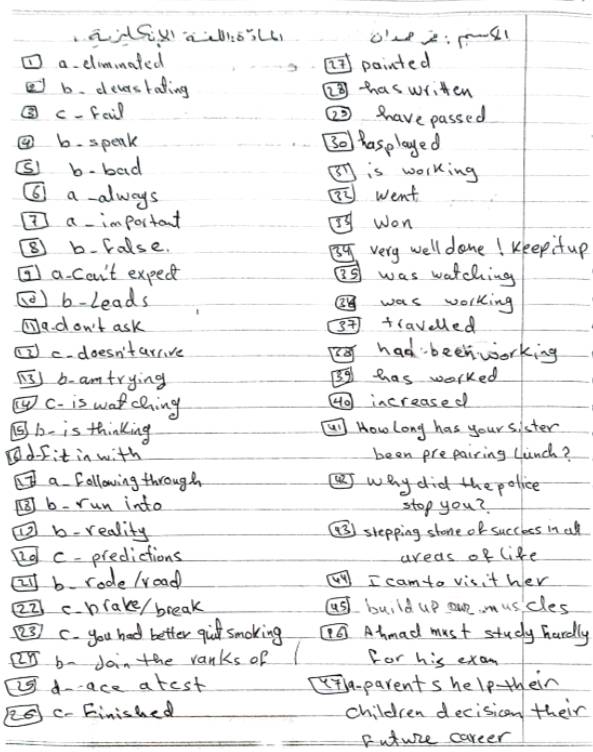 المادة: اللغة الإنكليزية
1 a-eliminated
2 b-devastating
3 c-fail
4 b-speak
5 b-bad
6 a-always
7 a-important
8 b-false.
9 a-Can't expect
10 b-Leads
11 a-don't ask
12 c-doesn't arrive
13 b-am trying
14 c-is watching
15 b-is thinking
16 d-fit in with
17 a-following through
18 b-run into
19 b-reality
20 c-predictions
21 b-rode/road
22 c-brake/break
23 c-you had better quit smoking
24 b-Join the ranks of
25 d-ace a test
26 c-Finished
الاسم:
27 painted
28 has written
29 have passed
30 has played
31 is working
32 went
33 won
34 very well done! Keep it up
35 was watching
36 was working
37 travelled
38 had been working
39 has worked
40 increased
41 How Long has your sister
been prepairing Lunch?
42 why did the police
stop you?
43 stepping stone of success in all
areas of life
44 I cam to visit her
45 build up our muscles
46 Ahmad must study hardly
for his exam
47 a-parents help their
children decision their
future career